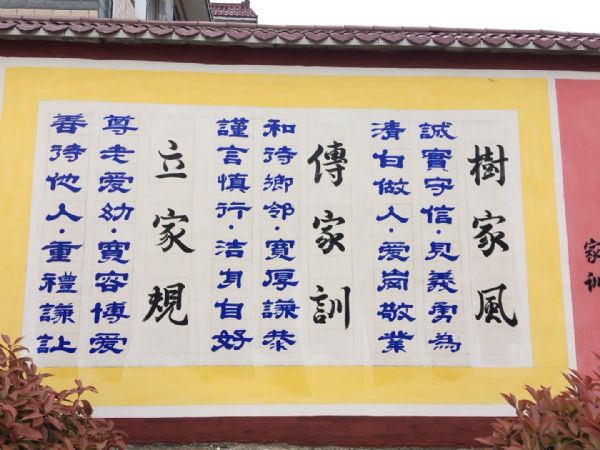 家訓
樹家風
誠實守信·見義勇為
清白做人·爱崗敬業
傳家訓
和待鄉邻·寬厚謙恭
謹言慎行·洁身自好
立家規
尊老爱幼·寬容博爱
善待他人·重禮謙让